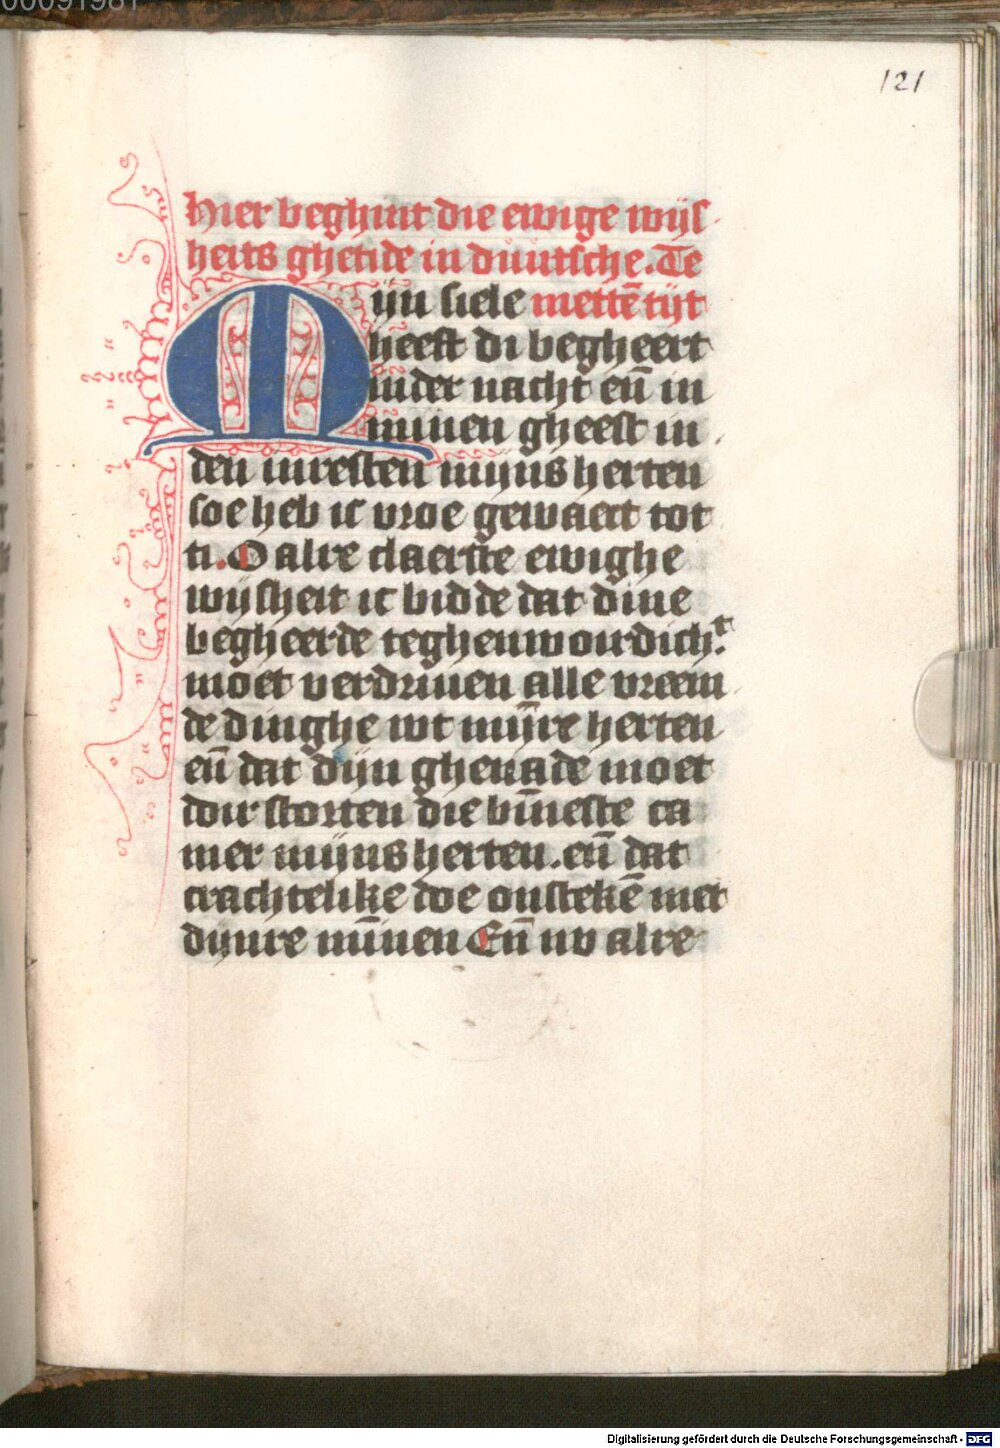 121
Hier beghint die ewige wijs
heits ghetide in duutsche. Te
Mijn siele mettē tijt
heeft di begheert
inder nacht eñ in
minen gheest in
den inresten mijns herten
soe heb ic vroe gewaect tot
ti. O alre claerste ewighe
wijsheit ic bidde dat dine
begheerde teghenwordichᵗ.
moet verdriuen alle vreem
de dinghe wt mijn̄re herten
eñ dat dijn ghenade moet
doir storten die bīneste ca
mer mijns herten. eñ dat
crachtelike doe onstekē met
dijnre mīnen Eñ nv alre
Digitalisierung gefördert durch die Deutsche Forschungsgemeinschaft - DFG